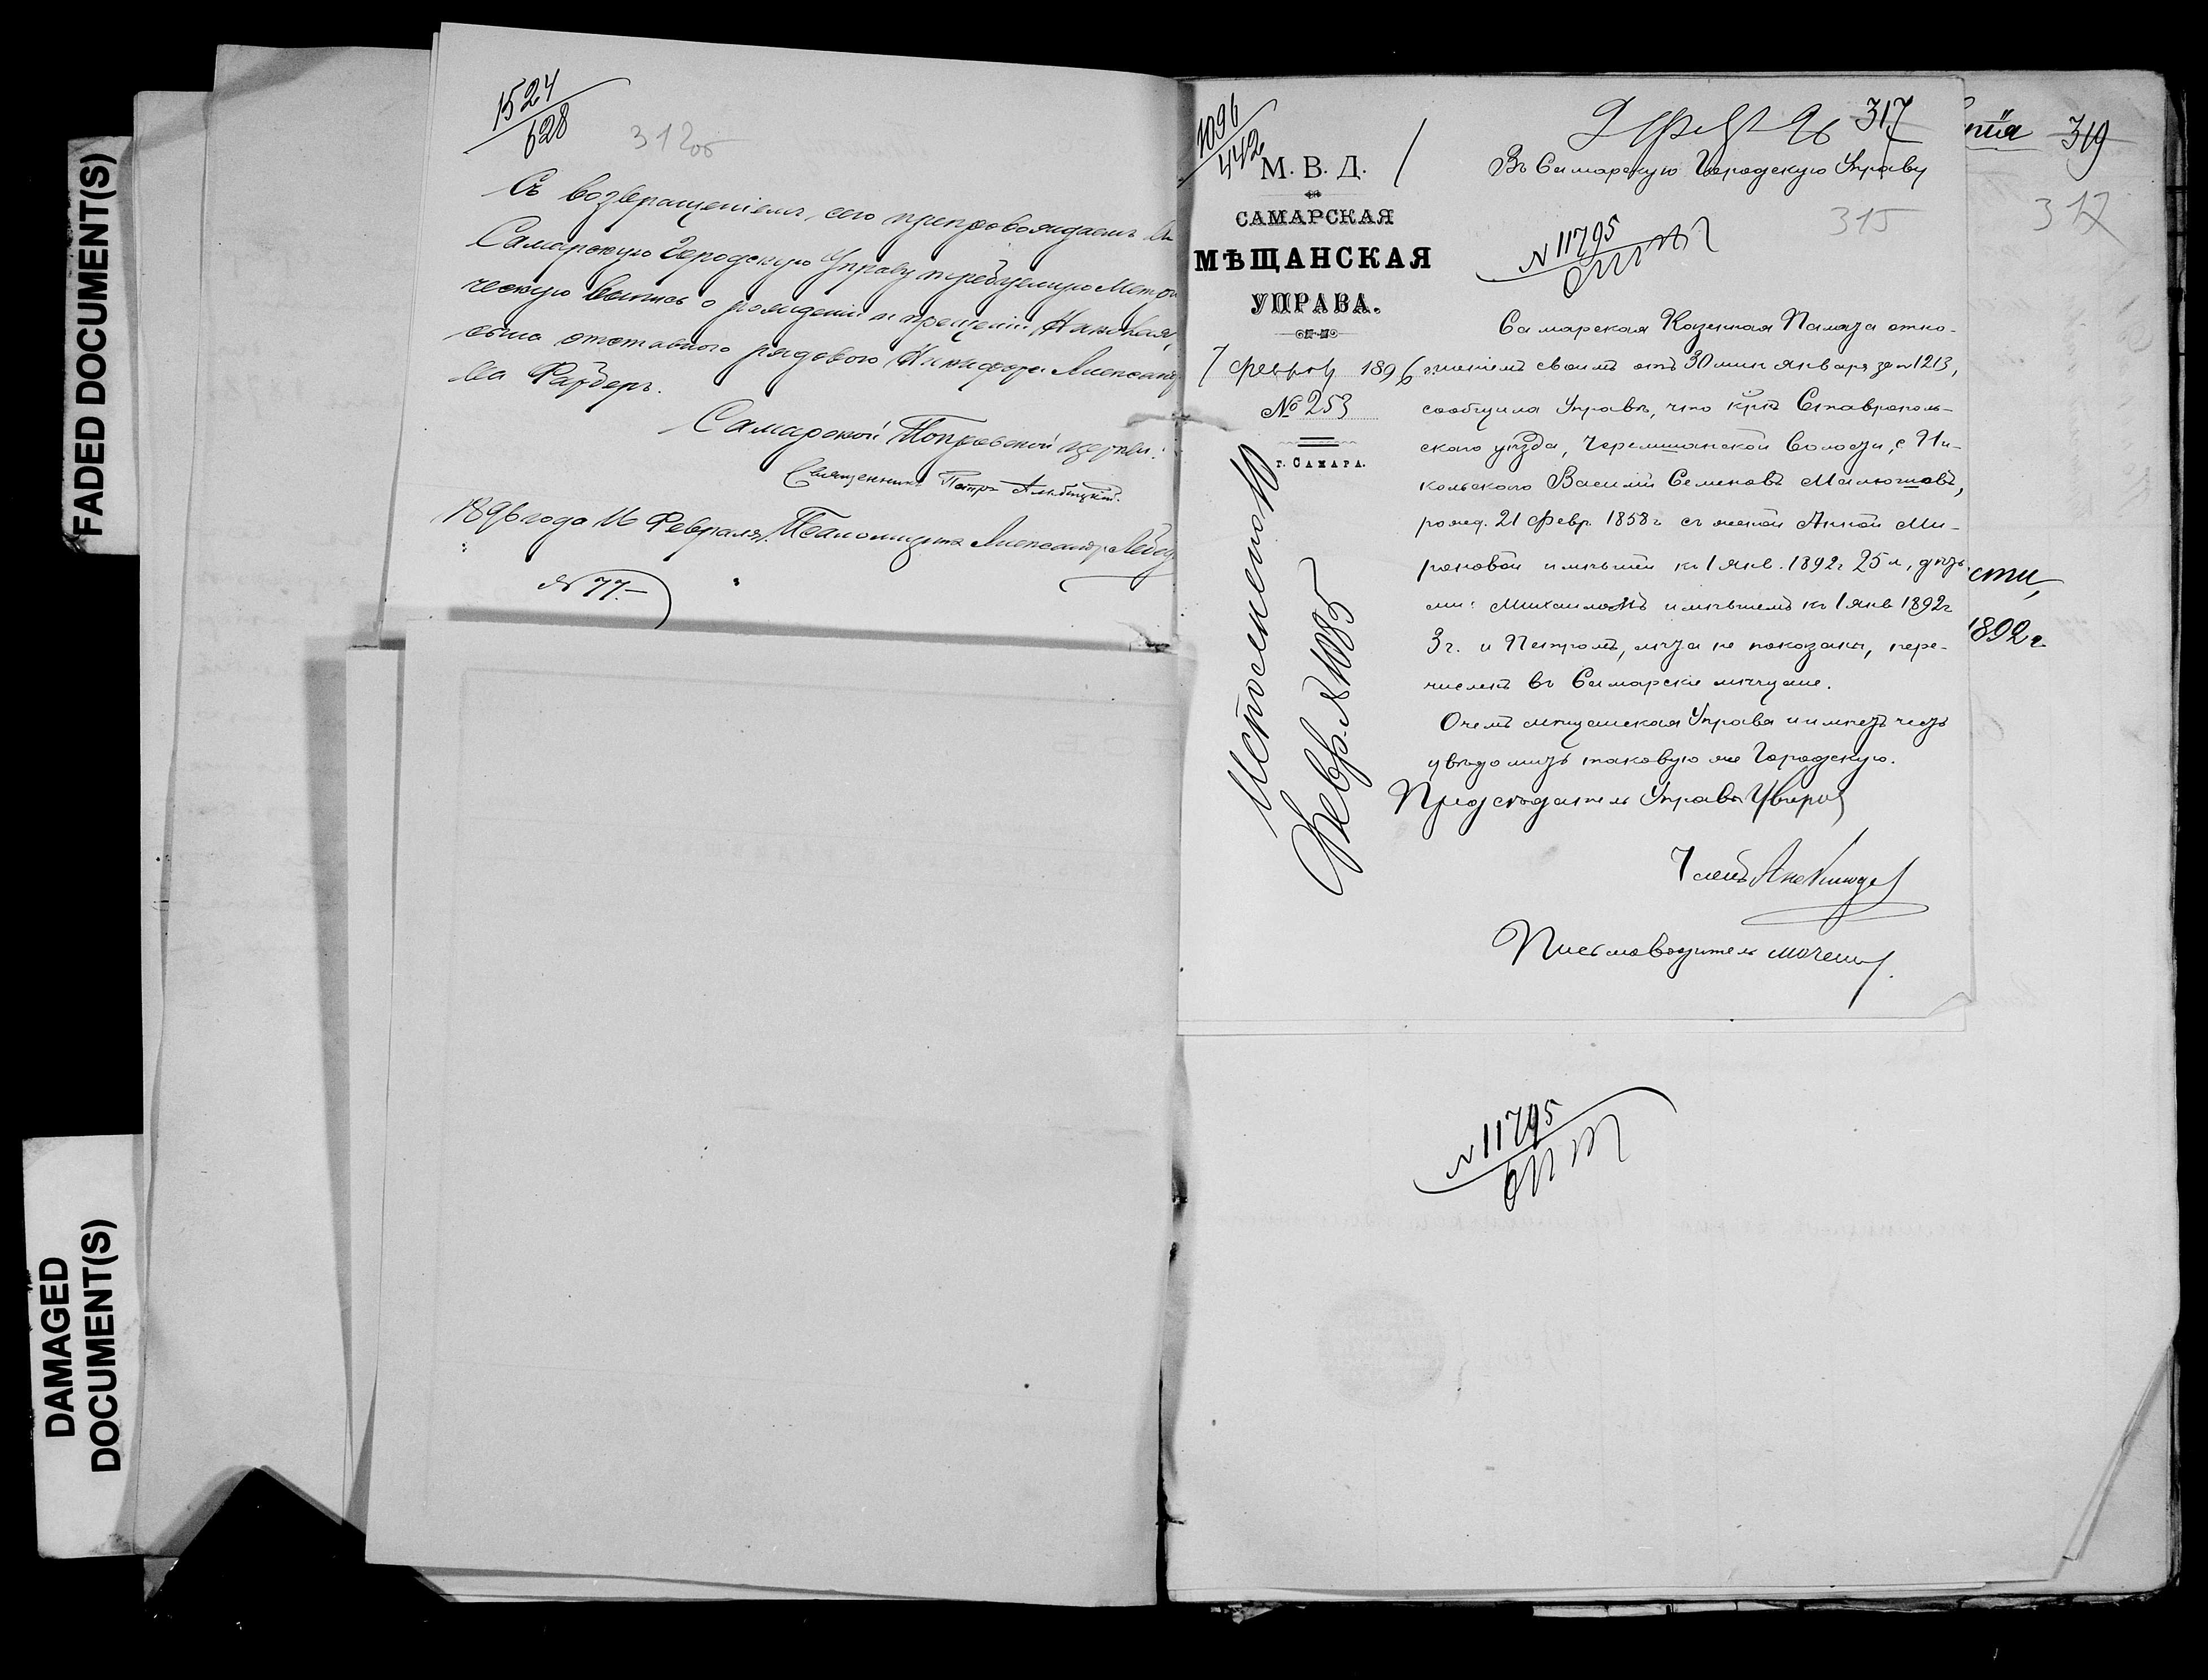 FADED DOCUMENT(S)
DAMAGED
DOCUMENT(S)
1524
628
312об
Съ возвращеніемъ сего препровождаемъ въ
Самарскую Городскую Управу требуемую Метри
ческую выпись о рожденіи и крещеніи Николая,
сына отставного рядового Никифора Александр
ва Фарберъ.
Самарской Покровской церкви:
Священникъ Петръ
1896 года 16 Февраля. Псаломщикъ Александръ
№ 77.
1096
442
М. В. Д.
САМАРСКАЯ
МѢЩАНСКАЯ
УПРАВА.
7 февр 1896
№ 253
г. САМАРА.
Исполнено 10
Февр. №1085
9 февр 96 317
Въ Самарскую Городскую Управу
315
№ 11795
Самарская Казенная Палата отно-
шеніемъ своимъ отъ 30 мин января за № 1213,
сообщила Управѣ, что крнъ Ставрополь-
скаго уѣзда, Черемшанской волости, с Ни-
кольскаго Василій Семеновъ Малюшовъ,
рожд. 21 февр. 1858 г съ женой Анной Ми-
роновой имѣвшей къ 1 янв. 1892 г 25 л, дѣть-
ми: Михаиломъ имѣвшемъ къ 1 янв 1892 г
3 г. и Петромъ, лѣта не показаны, пере-
численъ въ Самарскіе мѣщане.
О чемъ мѣщанская Управа и имѣетъ честь
увѣдомить таковую же Городскую.
Предсѣдатель Управы
Членъ
Письмоводитель
№ 11795
319
317
сти,
1892 г.